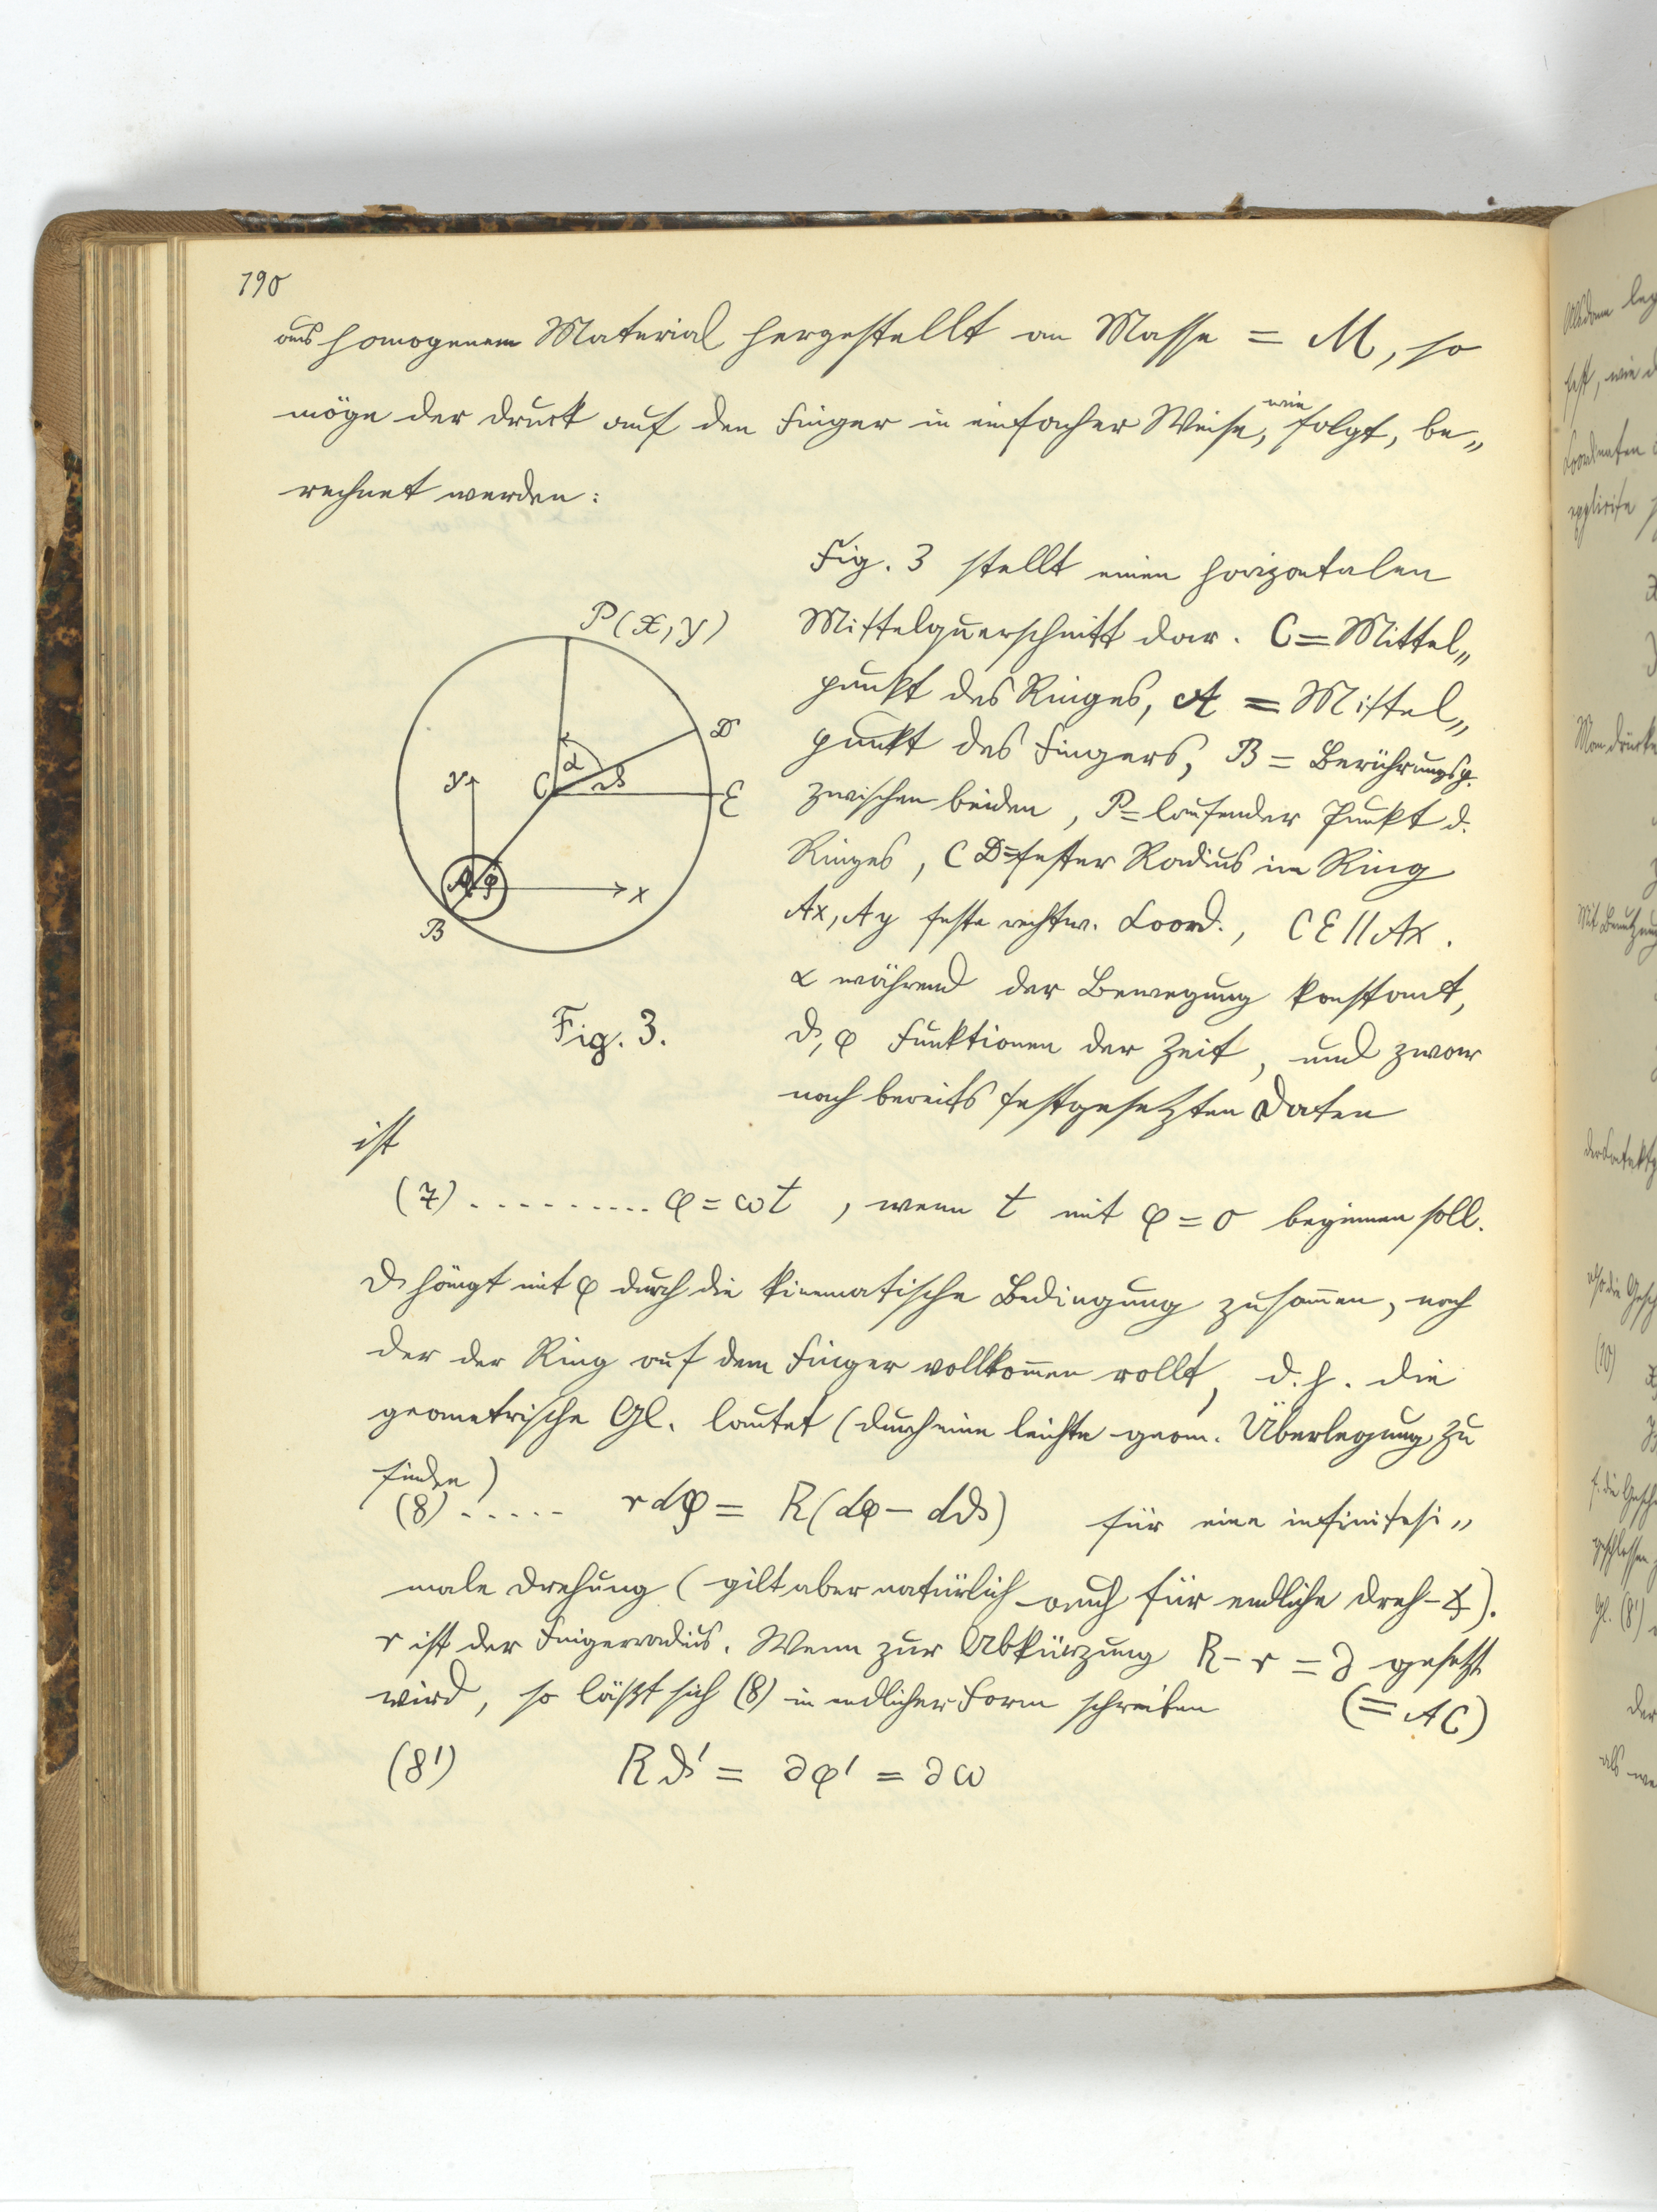 190
aus homogenem Material hergestellt an Masse = M, so
möge der Druck auf den Finger in einfacher Weise, wie folgt, be„
rechnet werden:
Fig. 3 stellt einen horizontalen
Mittelquerschnitt dar. C = Mittel„
punkt des Ringes, A = Mittel„
punkt des Fingers, B = Berührungsp.
zwischen beiden, P = laufender Punkt d.
Ringes, CD = fester Radius im Ring
Ax, Ay feste rechtw. Coord., CE // Ax.
α während der Bewegung konstant,
ϑ, φ Funktionen der Zeit, und zwar
nach bereits festgesetzten Daten
P(x, y)
D
y
C
α
ϑ
E
A
φ
x
B
Fig. 3.
ist
(7) .......... φ = ωt, wenn t mit φ = 0 beginnen soll.
ϑ hängt mit φ durch die kinematische Bedingung zusammen, nach
der der Ring auf dem Finger vollkommen rollt, d.h. die
geometrische Gl. lautet (durch eine leichte geom. Überlegung zu
finden)
(8) ..... r dφ = R(dφ – dϑ) für eine infinitesi„
male Drehung (gilt aber natürlich auch für endliche Dreh-∢).
r ist der Fingerradius. Wenn zur Abkürzung R – r = ∂ gesetzt
wird, so läßt sich (8) in endlicher Form schreiben (= AC)
(8') Rϑ' = ∂φ' = ∂ω